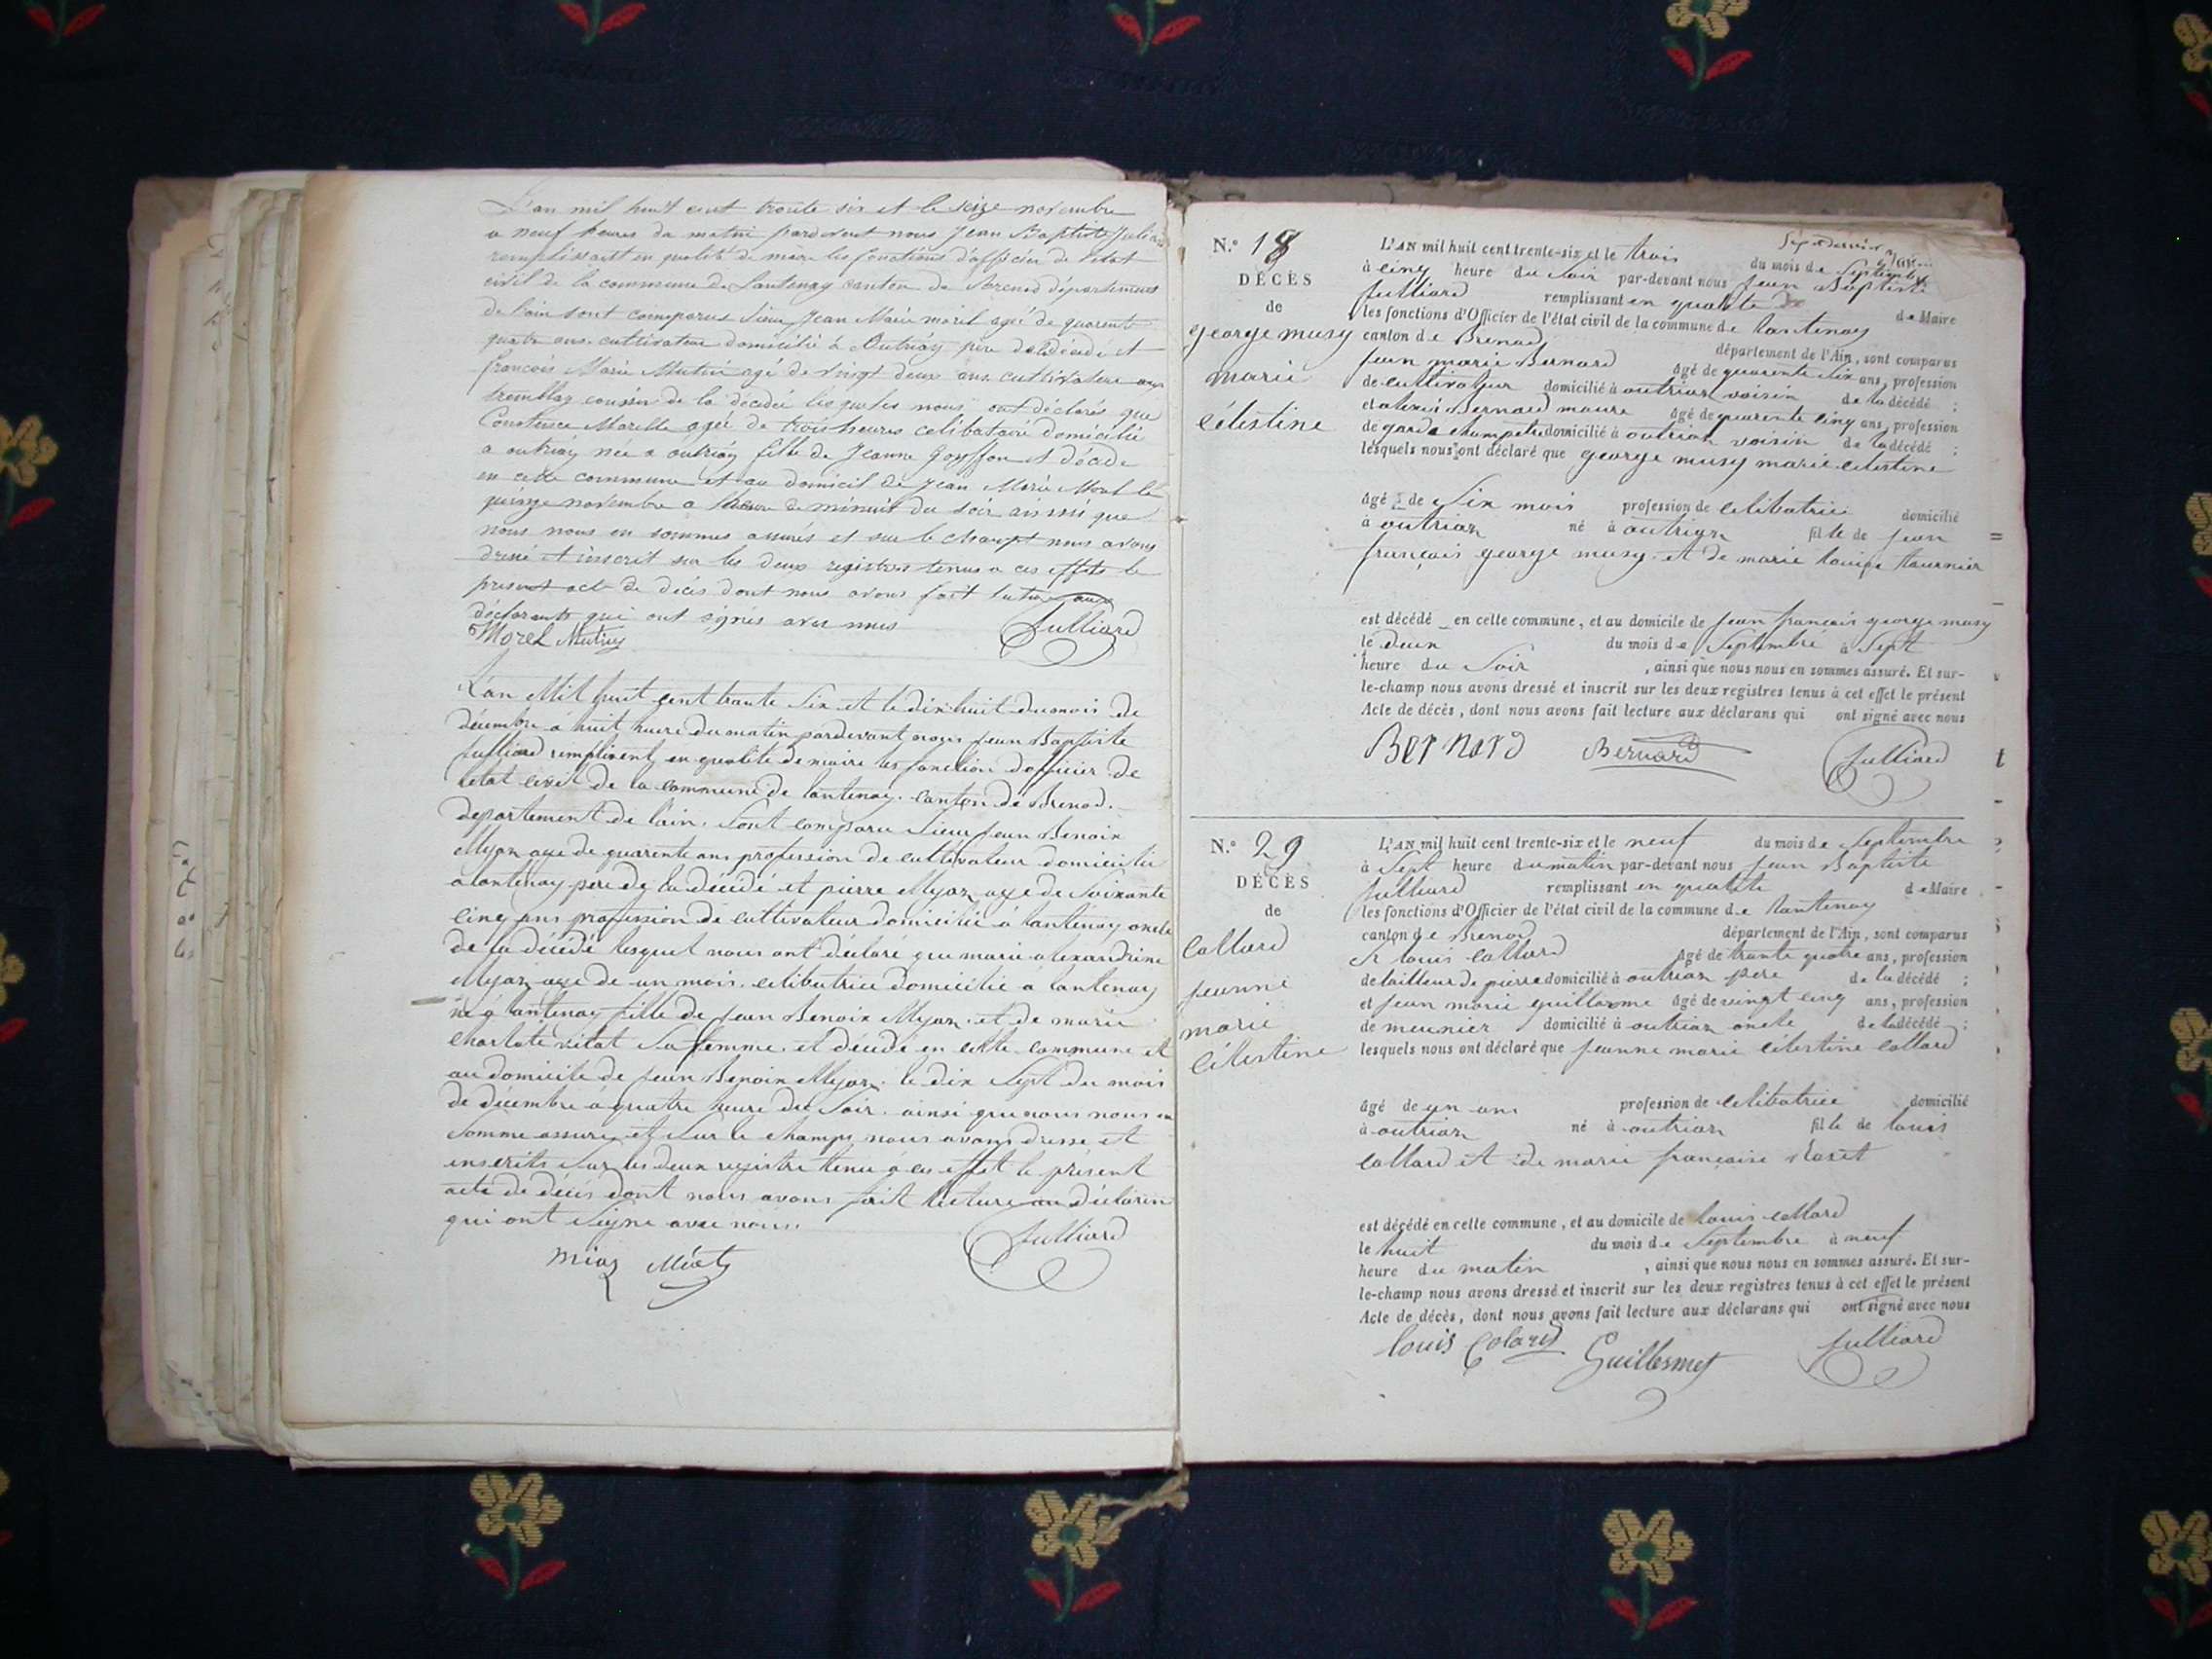 L'an mil huit cent trente six et le seize novembre
a neuf heures du matin pardevant nous Jean Baptiste Julliard
remplissant en qualité de maire les fonctions d'officier de l'état
civil de la commune de Lantenay canton de Brenod département
de l'ain sont comparus sieur Jean Marie morel agé de quarente
quatre ans cultivateur domicilié à Outriaz père de la décédé et
francois Marie Mutin agé de vingt deux ans cultivateur aux
tremblay coussin de la décédée lesquels nous ont déclarés que
Constence Morelle agée de trois heures celibataire domicilié
a outriaz née a outriaz fille de Jeanne Goyffon et décédé
en cette commune et au domicil de Jean Marie Morel le
quinze novembre a heure de minuit du soir ainssi que
nous nous en sommes assurés et sur le champt nous avons
dressé et inscrit sur les deux registres tenus a ces effets le
present acte de décès dont nous avons fait lecture aux
déclarants qui ont signés avec nous
Morel Mutin Julliard
L'an Mil huit cent trante Six et le dix huit du mois de
décembre a huit heure du matin pardevant nous jean Baptiste
julliard remplisent en qualité de maire les fonction dofficier de
letat civil de la commune de lantenay canton de Brenod.
departement de lain. Sont comparu Sieur jean Benoix
Myon age de quarente ans profession de cultivateur domicilié
a lantenay pere de la décédé et pierre Myon age de Soixante
cinq ans profession de cultivateur domicilié á lantenay oncle
de la décédé lesquel nous ont déclaré que marie alexandrine
Myon age de un mois. celibatrice domicilié a lantenay
né a lantenay fille de jean Benoix Myon. et de marie
charlote vitat Sa femme. et décédé en cette commune et
au domicile de jean Benoix Myon. le dix Sept du mois
de décembre a quatre heure du Soir. ainsi que nous nous en
Somme assure et Sur le champs nous avons dresse et
inscrits Sur les deux registre tenu a ces effet le présent
acte de décés dont nous avons fait lecture au déclaren
qui ont Signe avec nous.
Julliard
N.º 18
DÉCÈS
de
george musy
marie
célestine
L'AN mil huit cent trente-six et le trois du mois de Septembre
à cinq heure du Soir par-devant nous jean Baptiste
julliard remplissant en qualite de Maire
les fonctions d'Officier de l'état civil de la commune de lantenay
canton de Brenod département de l'Ain, sont comparus
jean marie Bernard âgé de quarente Six ans, profession
de cultivateur domicilié à outriaz voisin de la décédé ;
et alexis Bernard maure âgé de quarente cinq ans, profession
de garde champetre domicilié à outriaz voisin de la décédé ;
lesquels nous ont déclaré que george musy marie celestine
âgé de Six mois profession de celibatrice domicilié
à outriaz né à outriaz fille de jean
français george musy. et de marie louise tournier
est décédé en celle commune, et au domicile de jean français george musy
le deux du mois de Septembre à Sept
heure du Soir , ainsi que nous nous en sommes assuré. Et sur-
le-champ nous avons dressé et inscrit sur les deux registres tenus à cet effet le présent
Acte de décès, dont nous avons fait lecture aux déclarans qui ont signé avec nous
Bernard Bernard Julliard
N.º 29
DÉCÈS
de
collard
jeanne
marie
célestine
L'AN mil huit cent trente-six et le neuf du mois de Septembre
à Sept heure du matin par-devant nous jean Baptiste
julliard remplissant en qualite de Maire
les fonctions d'Officier de l'état civil de la commune de lantenay
canton de Brenod département de l'Ain, sont comparus
Sr louis collard âgé de trante quatre ans, profession
de tailleur de pierre domicilié à outriaz pere de la décédé ;
et jean marie guillaume âgé de vingt cinq ans, profession
de meunier domicilié à outriaz oncle de la décédé ;
lesquels nous ont déclaré que jeanne marie célestine collard
âgé de un ans profession de celibatrice domicilié
à outriaz né à outriaz fille de louis
collard et de marie française
est décédé en celle commune, et au domicile de louis collard
le huit du mois de Septembre à neuf
heure du matin , ainsi que nous nous en sommes assuré. Et sur-
le-champ nous avons dressé et inscrit sur les deux registres tenus à cet effet le présent
Acte de décès, dont nous avons fait lecture aux déclarans qui ont signé avec nous
louis Colard Guillermet Julliard